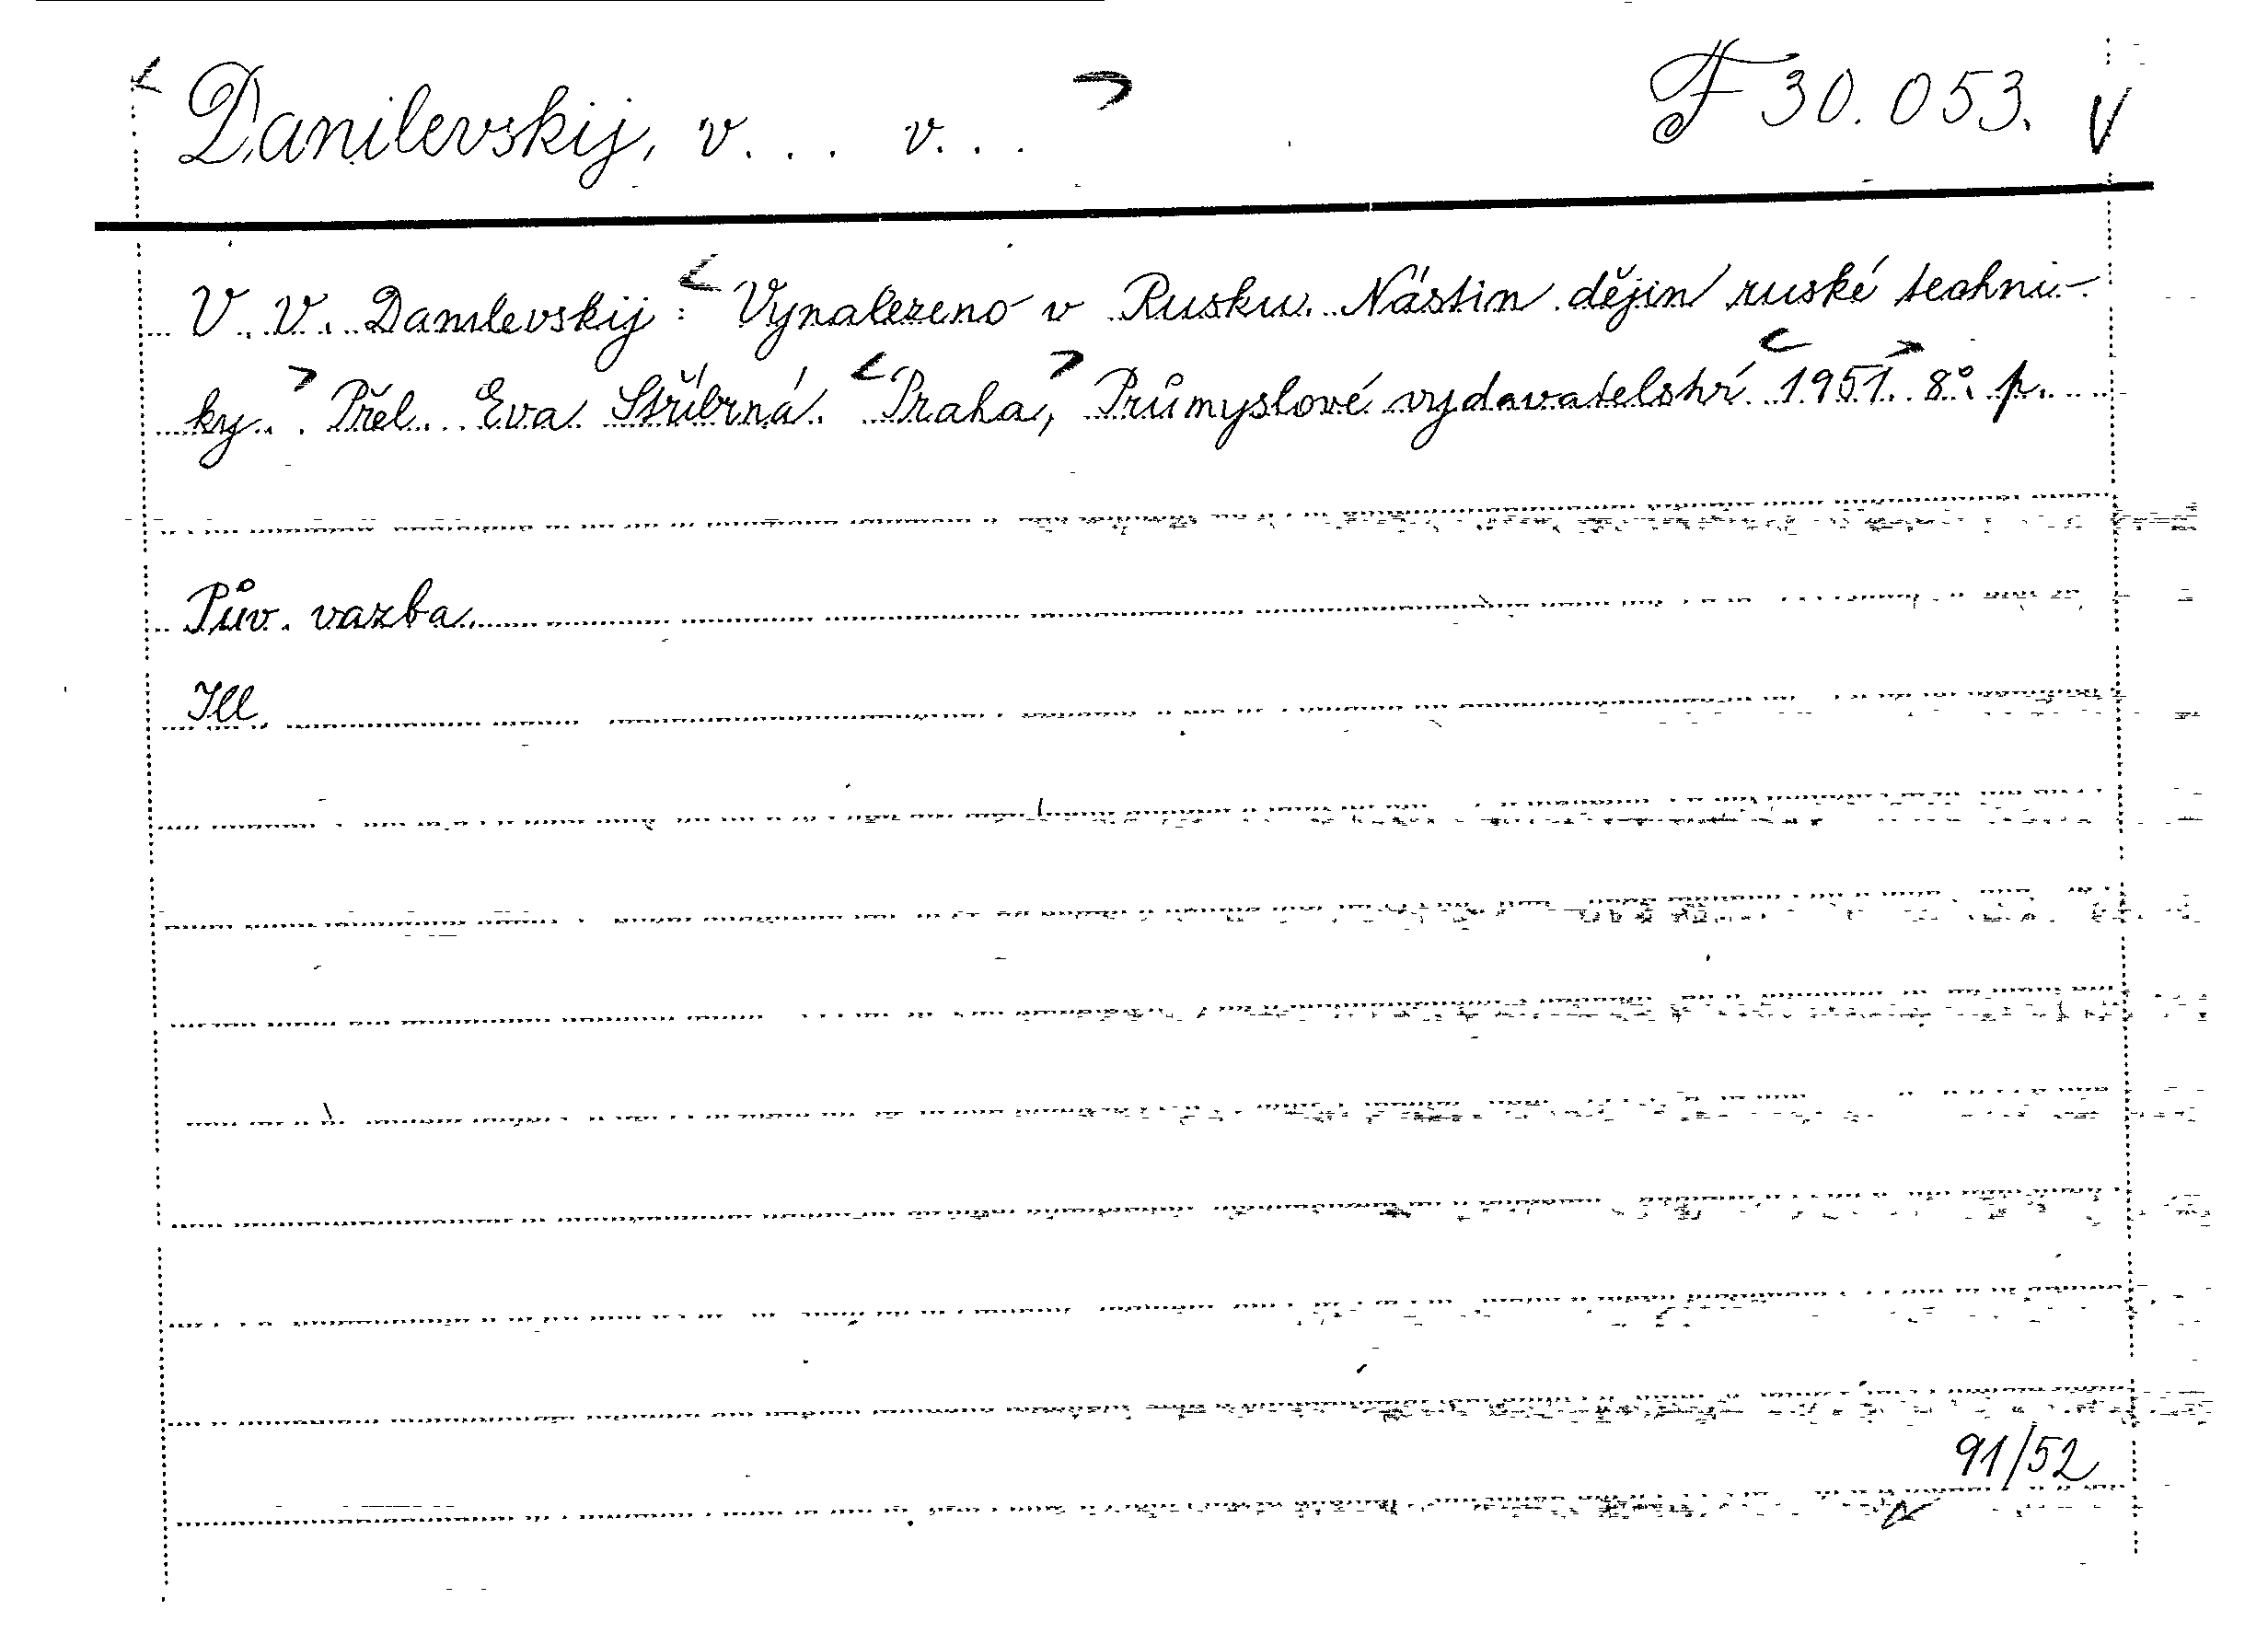 Danilevskij, V... V... F 30.053.
V. V. Danilevskij: Vynalezeno v Rusku. Nástin dějin ruské techni-
ky. Přel. Eva Stříbrná. Praha, Průmyslové vydavatelství 1951. 8°. p.
Pův. vazba.
Ill.
91/52